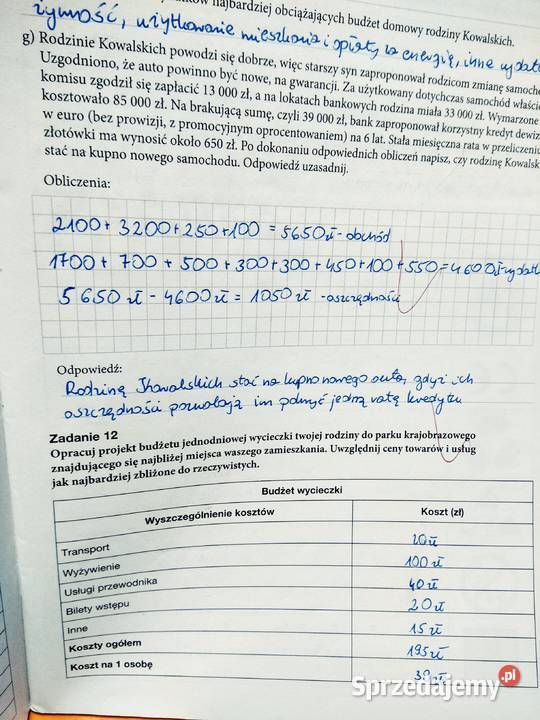 najbardziej obciążających budżet domowy rodziny Kowalskich.
żywność, użytkowanie mieszkania i opłaty za energię, inne wydatki
g) Rodzinie Kowalskich powodzi się dobrze, więc starszy syn zaproponował rodzicom zmianę samocho
Uzgodniono, że auto powinno być nowe, na gwarancji. Za użytkowany dotychczas samochód właści
komisu zgodził się zapłacić 13 000 zł, a na lokatach bankowych rodzina miała 33 000 zł. Wymarzone
kosztowało 85 000 zł. Na brakującą sumę, czyli 39 000 zł, bank zaproponował korzystny kredyt dewiz
w euro (bez prowizji, z promocyjnym oprocentowaniem) na 6 lat. Stała miesięczna rata w przeliczeniu
złotówki ma wynosić około 650 zł. Po dokonaniu odpowiednich obliczeń napisz, czy rodzinę Kowalsk
stać na kupno nowego samochodu. Odpowiedź uzasadnij.
Obliczenia:
2100 + 3200 + 250 + 100 = 5650 zł - dochód
1700 + 700 + 500 + 300 + 300 + 450 + 100 + 550 = 4600 zł - wydatki
5 650 zł - 4600 zł = 1050 zł - oszczędności
Odpowiedź:
Rodzinę Kowalskich stać na kupno nowego auta, gdyż ich
oszczędności pozwalają im pokryć jedną ratę kredytu
Zadanie 12
Opracuj projekt budżetu jednodniowej wycieczki twojej rodziny do parku krajobrazowego
znajdującego się najbliżej miejsca waszego zamieszkania. Uwzględnij ceny towarów i usług
jak najbardziej zbliżone do rzeczywistych.
Budżet wycieczki
Wyszczególnienie kosztów Koszt (zł)
Transport 20 zł
Wyżywienie 100 zł
Usługi przewodnika 40 zł
Bilety wstępu 20 zł
Inne 15 zł
Koszty ogółem 195 zł
Koszt na 1 osobę 39 zł
Sprzedajemy.pl